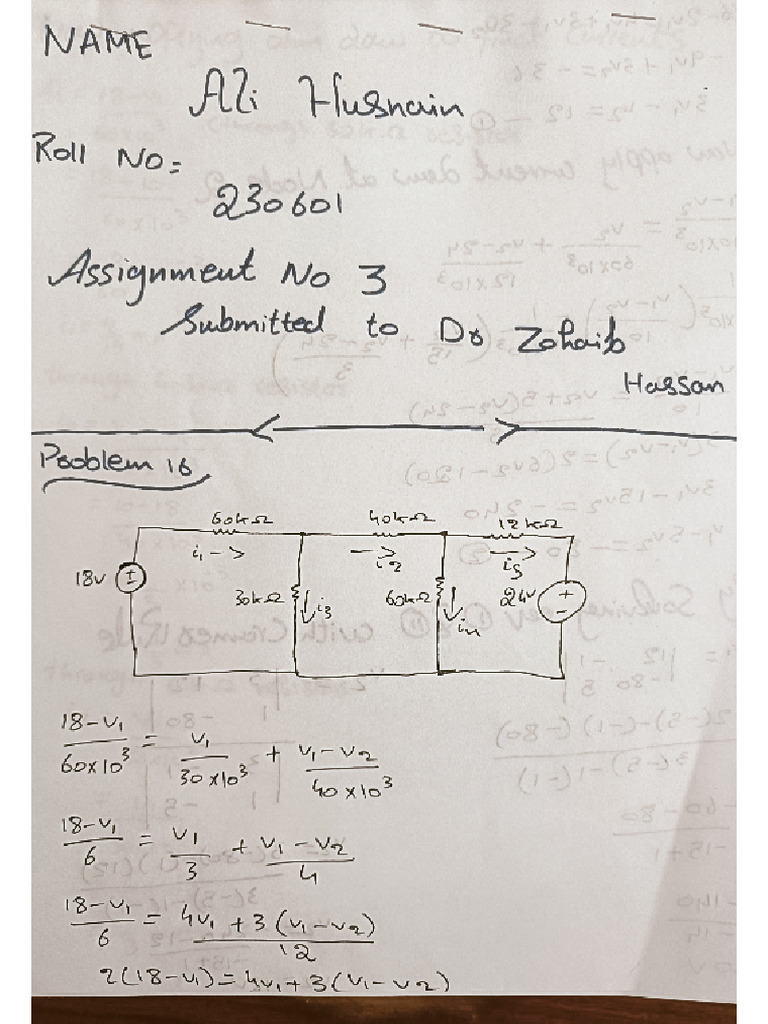 NAME
Ali Husnain
Roll No:
230601
Assignment No 3
Submitted to Dr Zohaib
Hassan
Problem 16
60kΩ 40kΩ 12kΩ
i₁ -> -> i₂ -> i₅
18v 30kΩ i₃ 60kΩ i₄ 24v
(18-v₁)/(60x10³) = v₁/(30x10³) + (v₁-v₂)/(40x10³)
(18-v₁)/6 = v₁/3 + (v₁-v₂)/4
(18-v₁)/6 = (4v₁+3(v₁-v₂))/12
2(18-v₁)=4v₁+3(v₁-v₂)